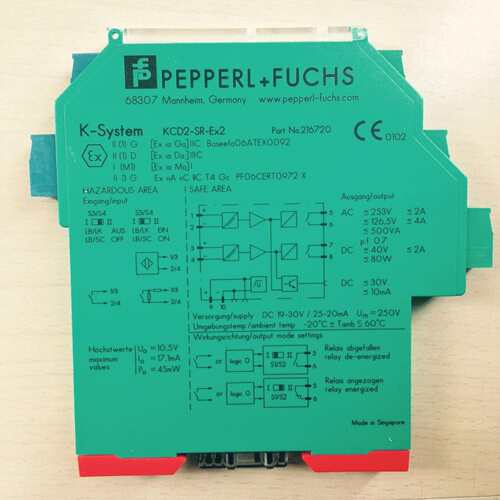 PEPPERL+FUCHS
68307 Mannheim, Germany www.pepperl-fuchs.com
K-System KCD2-SR-Ex2 Part No.216720
CE 0102
Ex
II (1) G [Ex ia Ga] IIC Baseefa06ATEX0092
II (1) D [Ex ia Da] IIIC
I (M1) [Ex ia Ma] I
II 3 G Ex nA nC IIC T4 Gc PF06CERT0972 X
HAZARDOUS AREA SAFE AREA
Eingang/input Ausgang/output
S3/S4 S3/S4
I II I II
LB/LK AUS LB/LK EIN
LB/SC OFF LB/SC ON
AC ≤ 253V ≤ 2A
≤ 126,5V ≤ 4A
≤ 500VA
p.f. 0.7
DC ≤ 40V ≤ 2A
≤ 80W
DC ≤ 30V
≤ 10mA
1/3
2/4
1/3 1/3
2/4 2/4
1 2 3 4
5 6 7 8
9 10
Versorgung/supply DC 19-30V / 25-20mA Um = 250V
Umgebungstemp/ambient temp -20°C ≤ Tamb ≤ 60°C
Wirkungsrichtung/output mode settings
Höchstwerte
maximum
values
Uo = 10.5V
Io = 17.1mA
Po = 45mW
or logic 0 I II S1/S2 5 6
Relais abgefallen
relay de-energized
or logic 0 I II S1/S2 5 6
Relais angezogen
relay energized
Made in Singapore